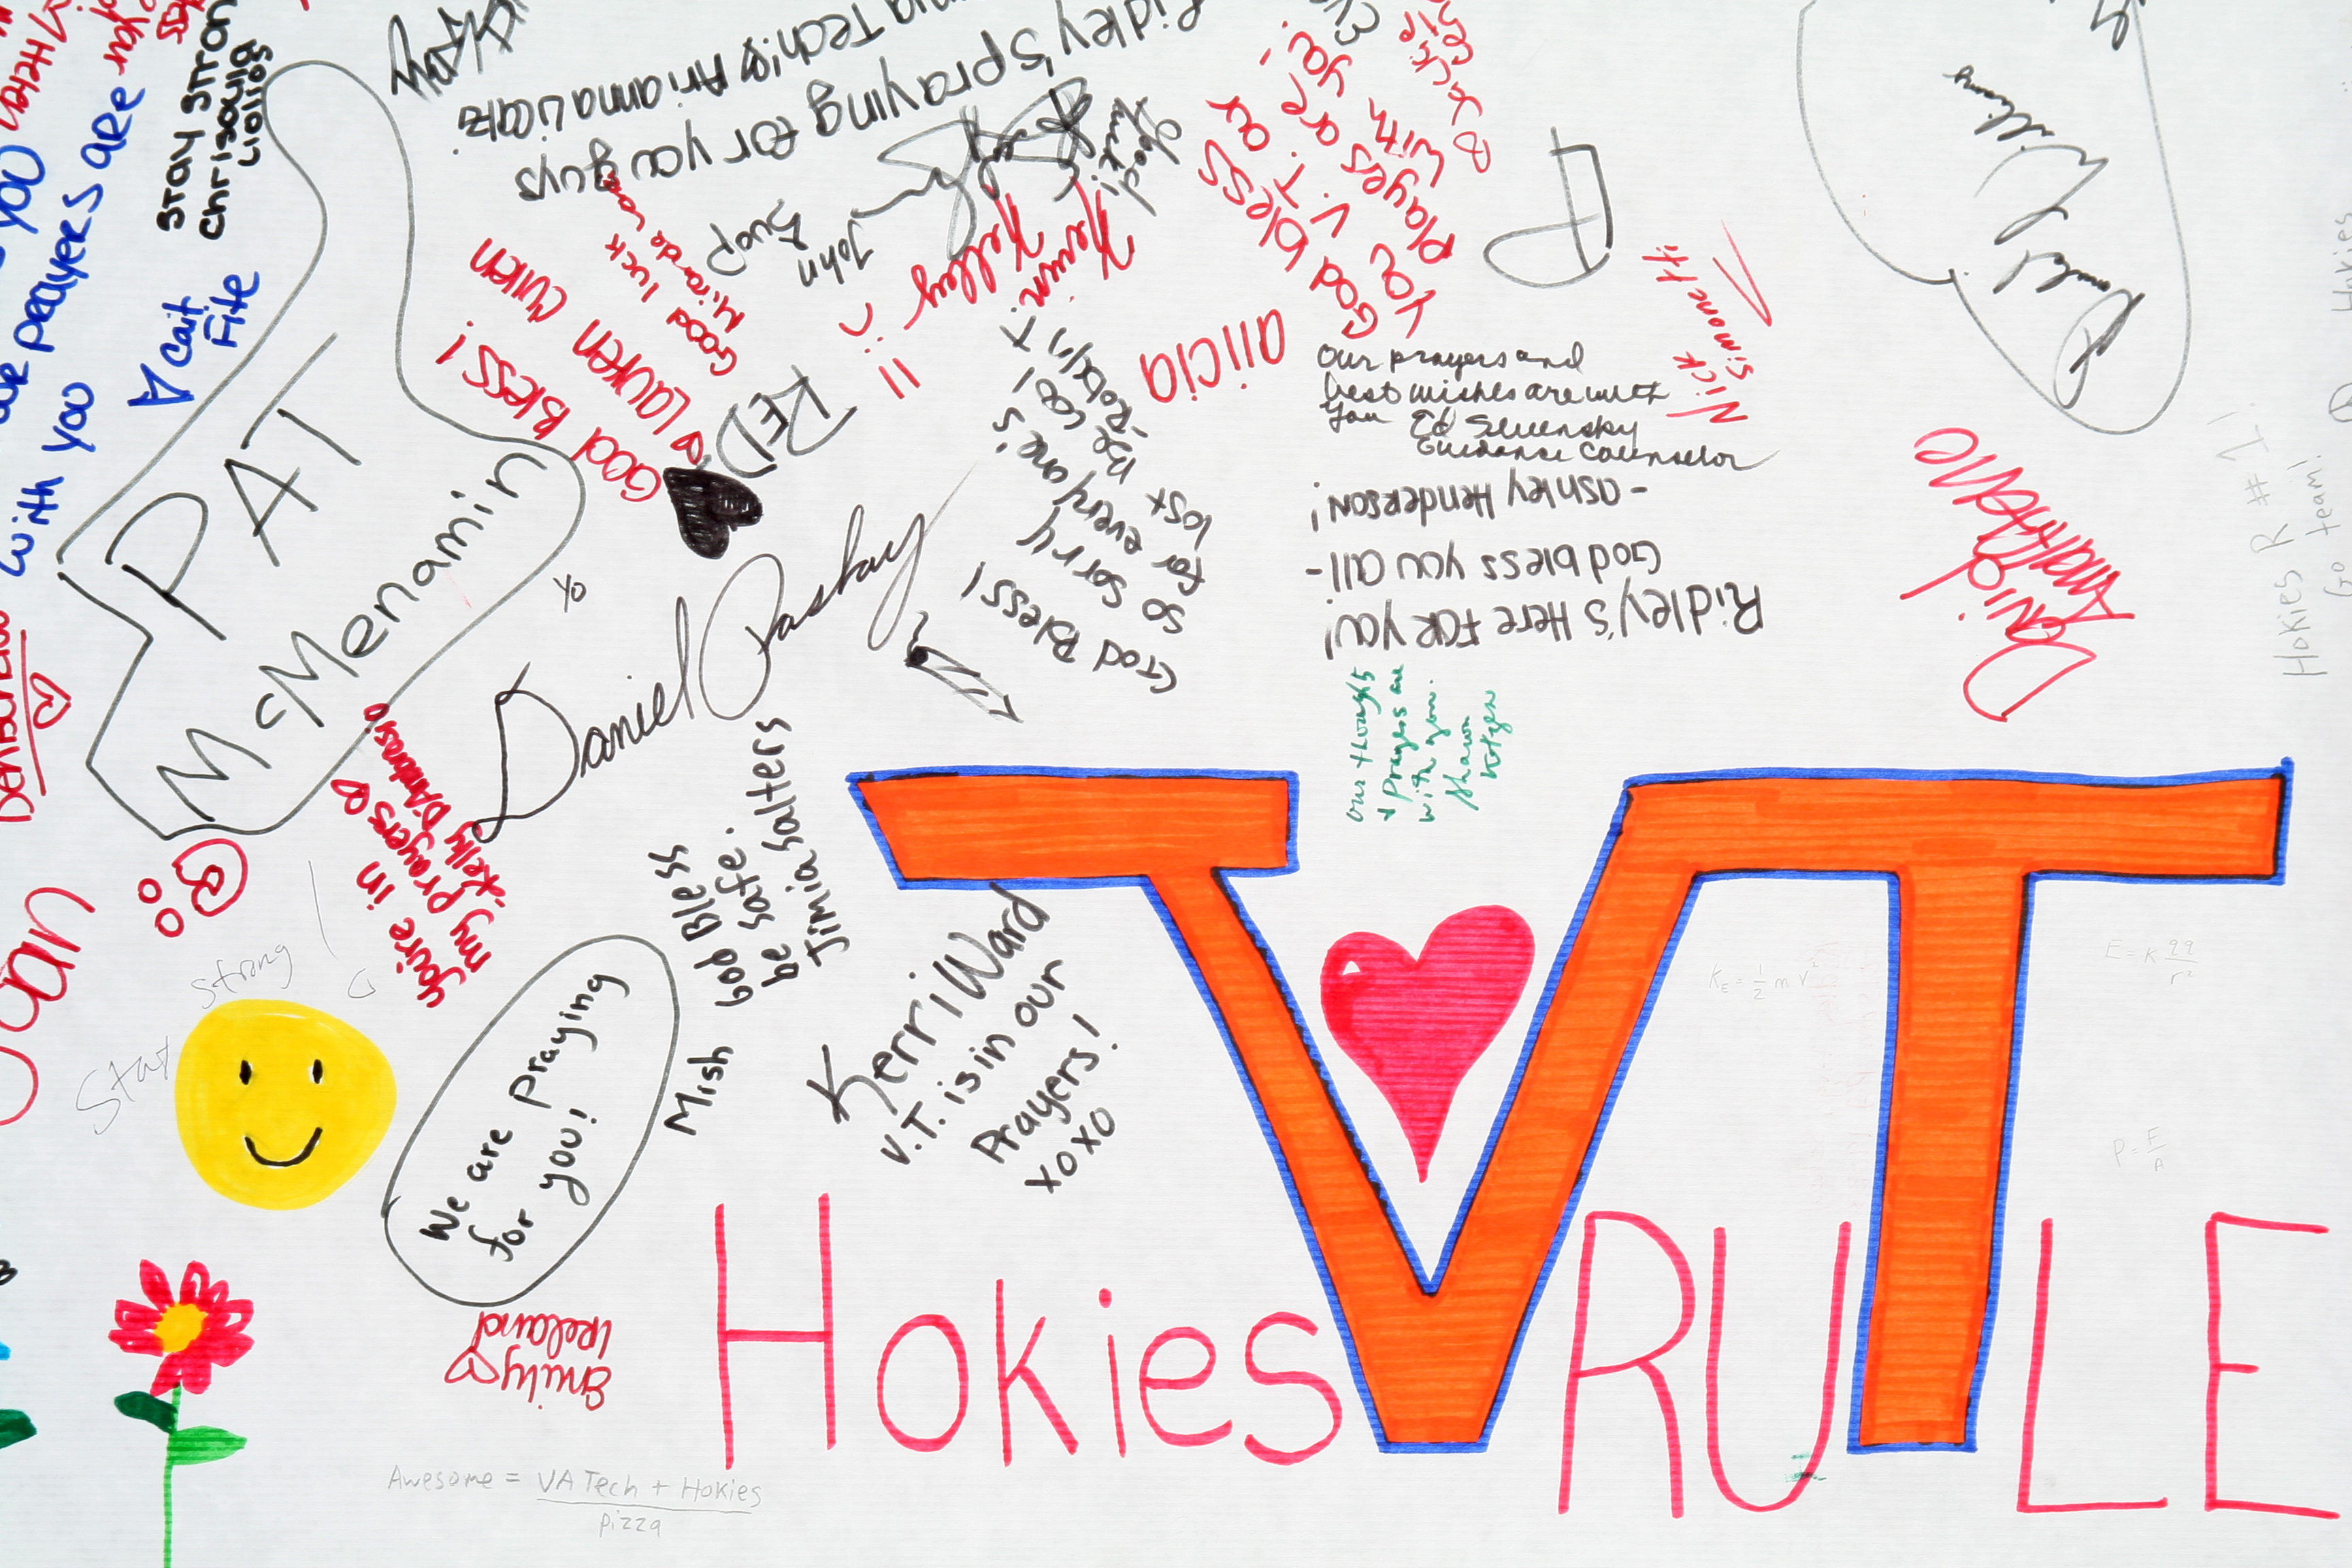 with you
our prayers are
you
Stay Stron
Chrisoula
Liolios
Cait
Fite
PAT
McMenamin
Ridley's praying for you guys
Tech! Arianna
God Bless!
Lauren Cullen
Good luck
John
RED
Kevin
Kelley
Good
luck!
alicia
God bless
V.T.
players are
with
Our prayers and
best wishes are with
you Ed
Guidance Counselor
Nick
Simonetti
Daniel Williams
Ridley's Here For you!
God bless you all-
-Ashley Henderson!
God Bless!
so sorry
for everyone's
lost
Daniel Pashay
yo
Our thoughts
+ prayers are
with you.
Shawn
Daniel
Hokies R #1!
Go team!
Hokies
you're in
my prayers
Kelly D'Ambrosio
Stay
strong
We are praying
for you!
Mish
God Bless
be safe.
Jimia Salters
Kerri Ward
V.T. is in our
Prayers!
xoxo
VT
K_E = 1/2 m v²
E = K qq/r²
P = F/A
Emily
Ireland
Hokies RULE
Awesome = VA Tech + Hokies
pizza